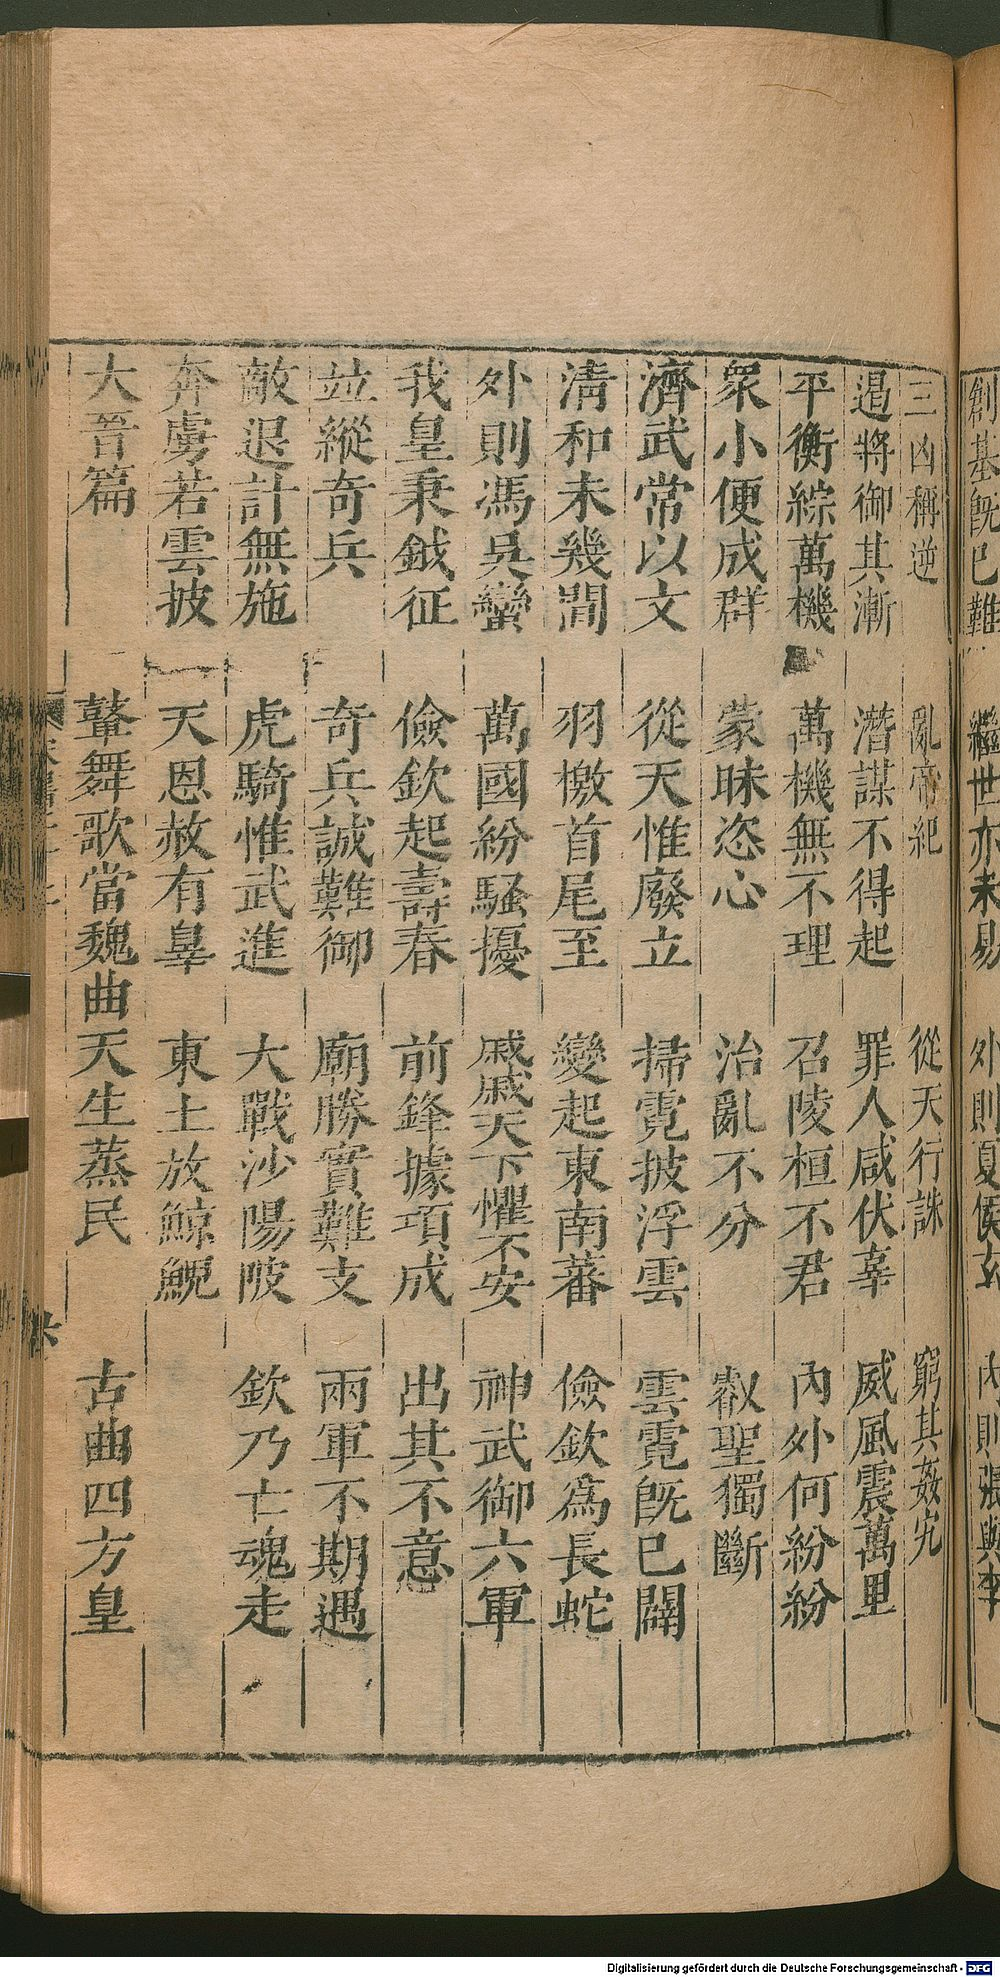 創基既已難 繼世亦未易 外則夏侯玄 內則張與李
三凶稱逆 亂帝紀 從天行誅 窮其姦宄
遏將御其漸 潛謀不得起 罪人咸伏辜 威風震萬里
平衡綜萬機 萬機無不理 召陵桓不君 內外何紛紛
衆小便成群 蒙昧恣心 治亂不分 叡聖獨斷
濟武常以文 從天惟廢立 掃霓披浮雲 雲霓旣已闢
清和未幾間 羽檄首尾至 變起東南蕃 儉欽爲長蛇
外則馮吳蠻 萬國紛騷擾 戚戚天下懼不安 神武御六軍
我皇秉鉞征 儉欽起壽春 前鋒據項成 出其不意
竝縱奇兵 奇兵誠難御 廟勝實難支 兩軍不期遇
敵退計無施 虎騎惟武進 大戰沙陽陂 欽乃亡魂走
奔虜若雲披 天恩赦有辠 東土放鯨鯢
大晉篇 鼙舞歌當魏曲天生蒸民 古曲四方皇
Digitalisierung gefördert durch die Deutsche Forschungsgemeinschaft - DFG